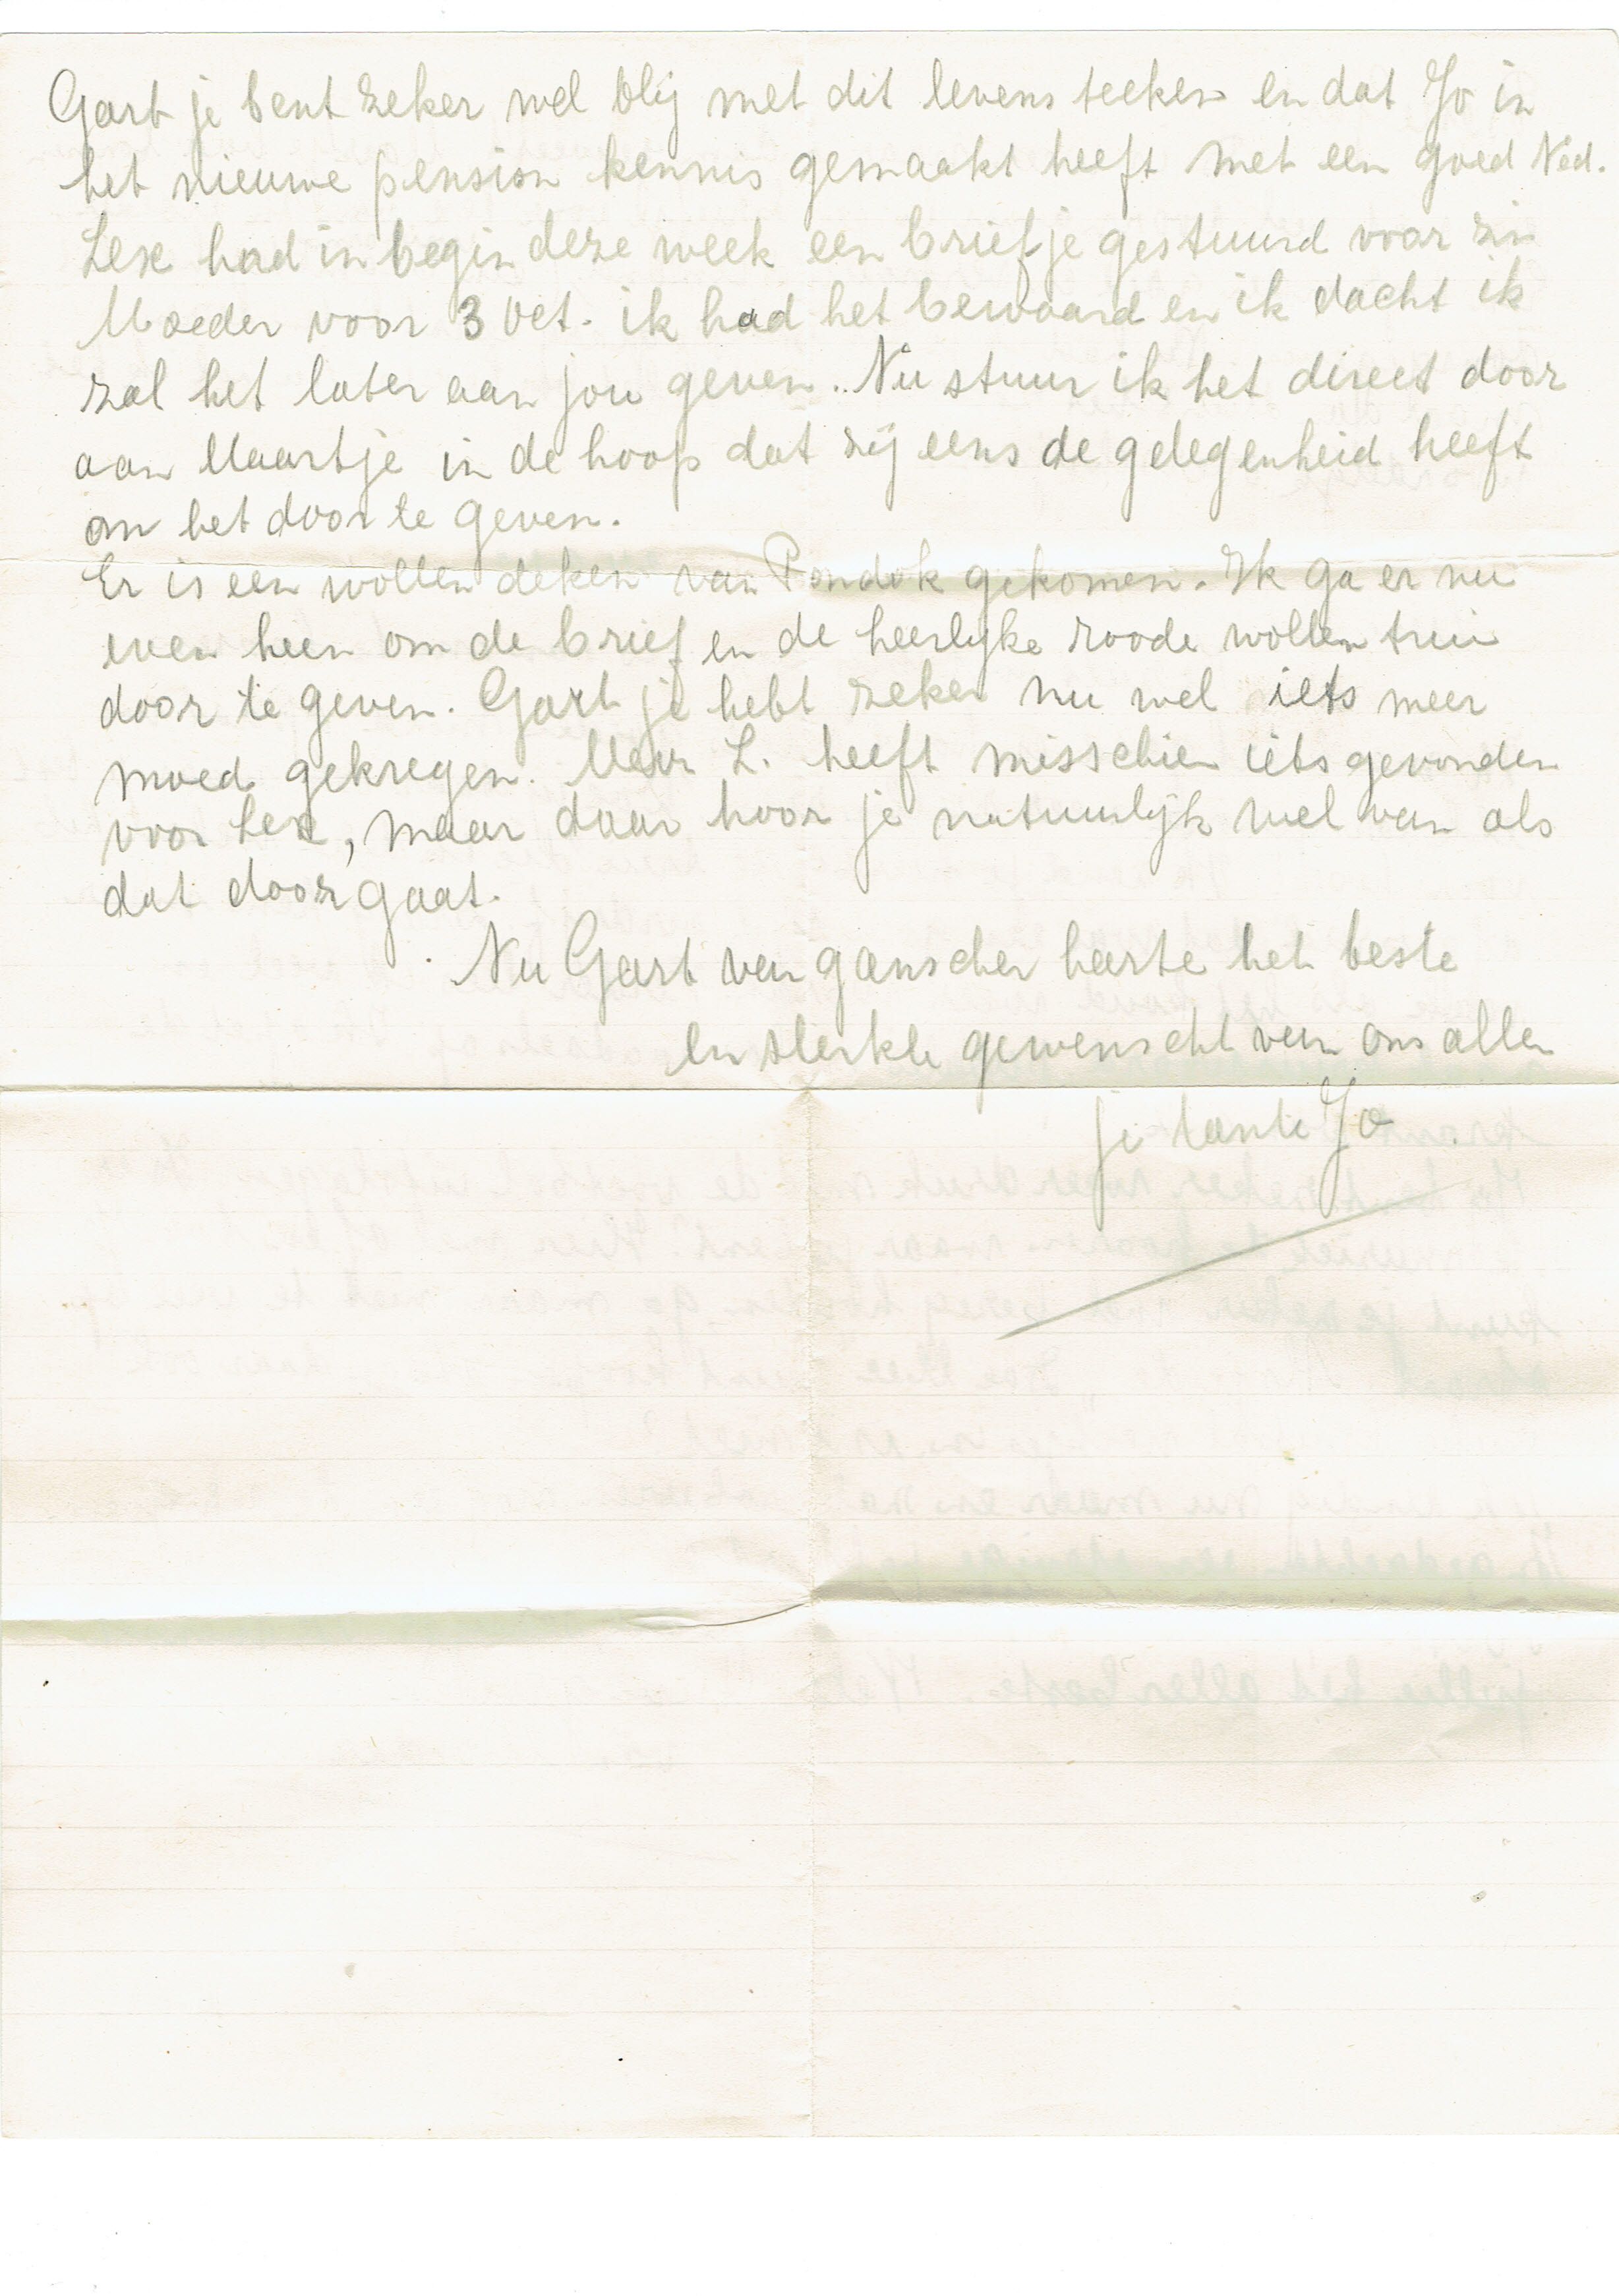 Gart je bent zeker wel blij met dit levens teeken en dat Jo in
het nieuwe pension kennis gemaakt heeft met een goed Ned.
Lex had in begin deze week een briefje gestuurd voor zin
Moeder voor 3 Oct. ik had het bewaard en ik dacht ik
zal het later aan jou geven. Nu stuur ik het direct door
aan Maartje in de hoop dat zij eens de gelegenheid heeft
om het door te geven.
Er is een wollen deken van Pondok gekomen. Ik ga er nu
even heen om de brief en de heerlijke roode wollen trui
door te geven. Gart je hebt zeker nu wel iets meer
moed gekregen. Mevr L. heeft misschien iets gevonden
voor Lex, maar daar hoor je natuurlijk wel van als
dat door gaat.
Nu Gart van ganscher harte het beste
en sterkte gewenscht van ons allen
je tante Jo